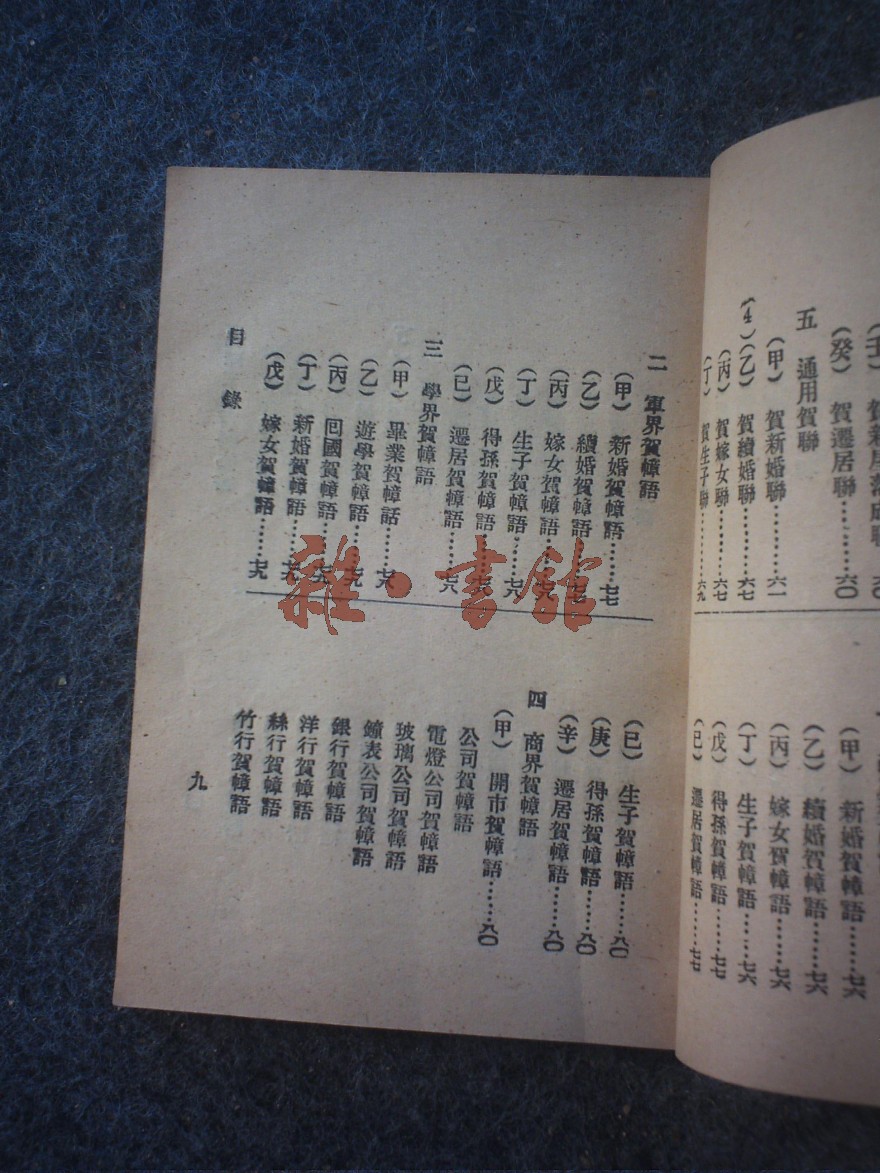 (癸)賀遷居聯………六〇
五 通用賀聯
(甲)賀新婚聯………六一
(乙)賀續婚聯………六七
(丙)賀嫁女聯………六七
(丁)賀生子聯………六九
(甲)新婚賀幛語……七六
(乙)續婚賀幛語……七六
(丙)嫁女賀幛語……七六
(丁)生子賀幛語……七六
(戊)得孫賀幛語……七七
(已)遷居賀幛語……七七
二 軍界賀幛語
(甲)新婚賀幛語……七七
(乙)續婚賀幛語……七七
(丙)嫁女賀幛語……
(丁)生子賀幛語……七八
(戊)得孫賀幛語……七八
(已)遷居賀幛語……七八
三 學界賀幛語
(甲)畢業賀幛話……
(乙)遊學賀幛語……七九
(丙)回國賀幛語……七九
(丁)新婚賀幛語……七九
(戊)嫁女賀幛語……七九
(已)生子賀幛語……八〇
(庚)得孫賀幛語……八〇
(辛)遷居賀幛語……八〇
四 商界賀幛語
(甲)開市賀幛語……八〇
公司賀幛語
電燈公司賀幛語
玻璃公司賀幛語
鐘表公司賀幛語
銀行賀幛語
洋行賀幛語
絲行賀幛語
竹行賀幛語
目錄
九
雜·書館